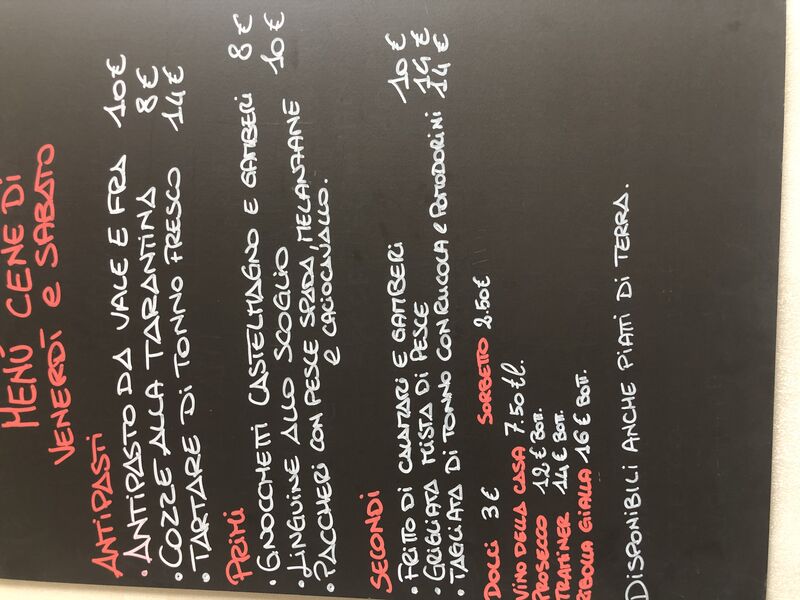 MENÙ CENE DI
VENERDÌ e SABATO
ANTIPASTI
• ANTIPASTO DA VALE E FRA 10€
• COZZE ALLA TARANTINA 8€
• TARTARE DI TONNO FRESCO 14€
PRIMI
• GNOCCHETTI CASTELMAGNO E GAMBERI 8€
• LINGUINE ALLO SCOGLIO 10€
• PACCHERI CON PESCE SPADA, MELANZANE
e CACIOCAVALLO.
SECONDI
• FRITTO DI CALAMARI E GAMBERI 10€
• GRIGLIATA MISTA DI PESCE 14€
• TAGLIATA DI TONNO CON RUCOLA e POMODORINI 14€
DOLCI 3€ SORBETTO 2.50€
VINO DELLA CASA 7.50€ l.
PROSECCO 12€ BOTT.
TRAMINER 14€ BOTT.
RIBOLLA GIALLA 16€ BOTT.
DISPONIBILI ANCHE PIATTI DI TERRA.